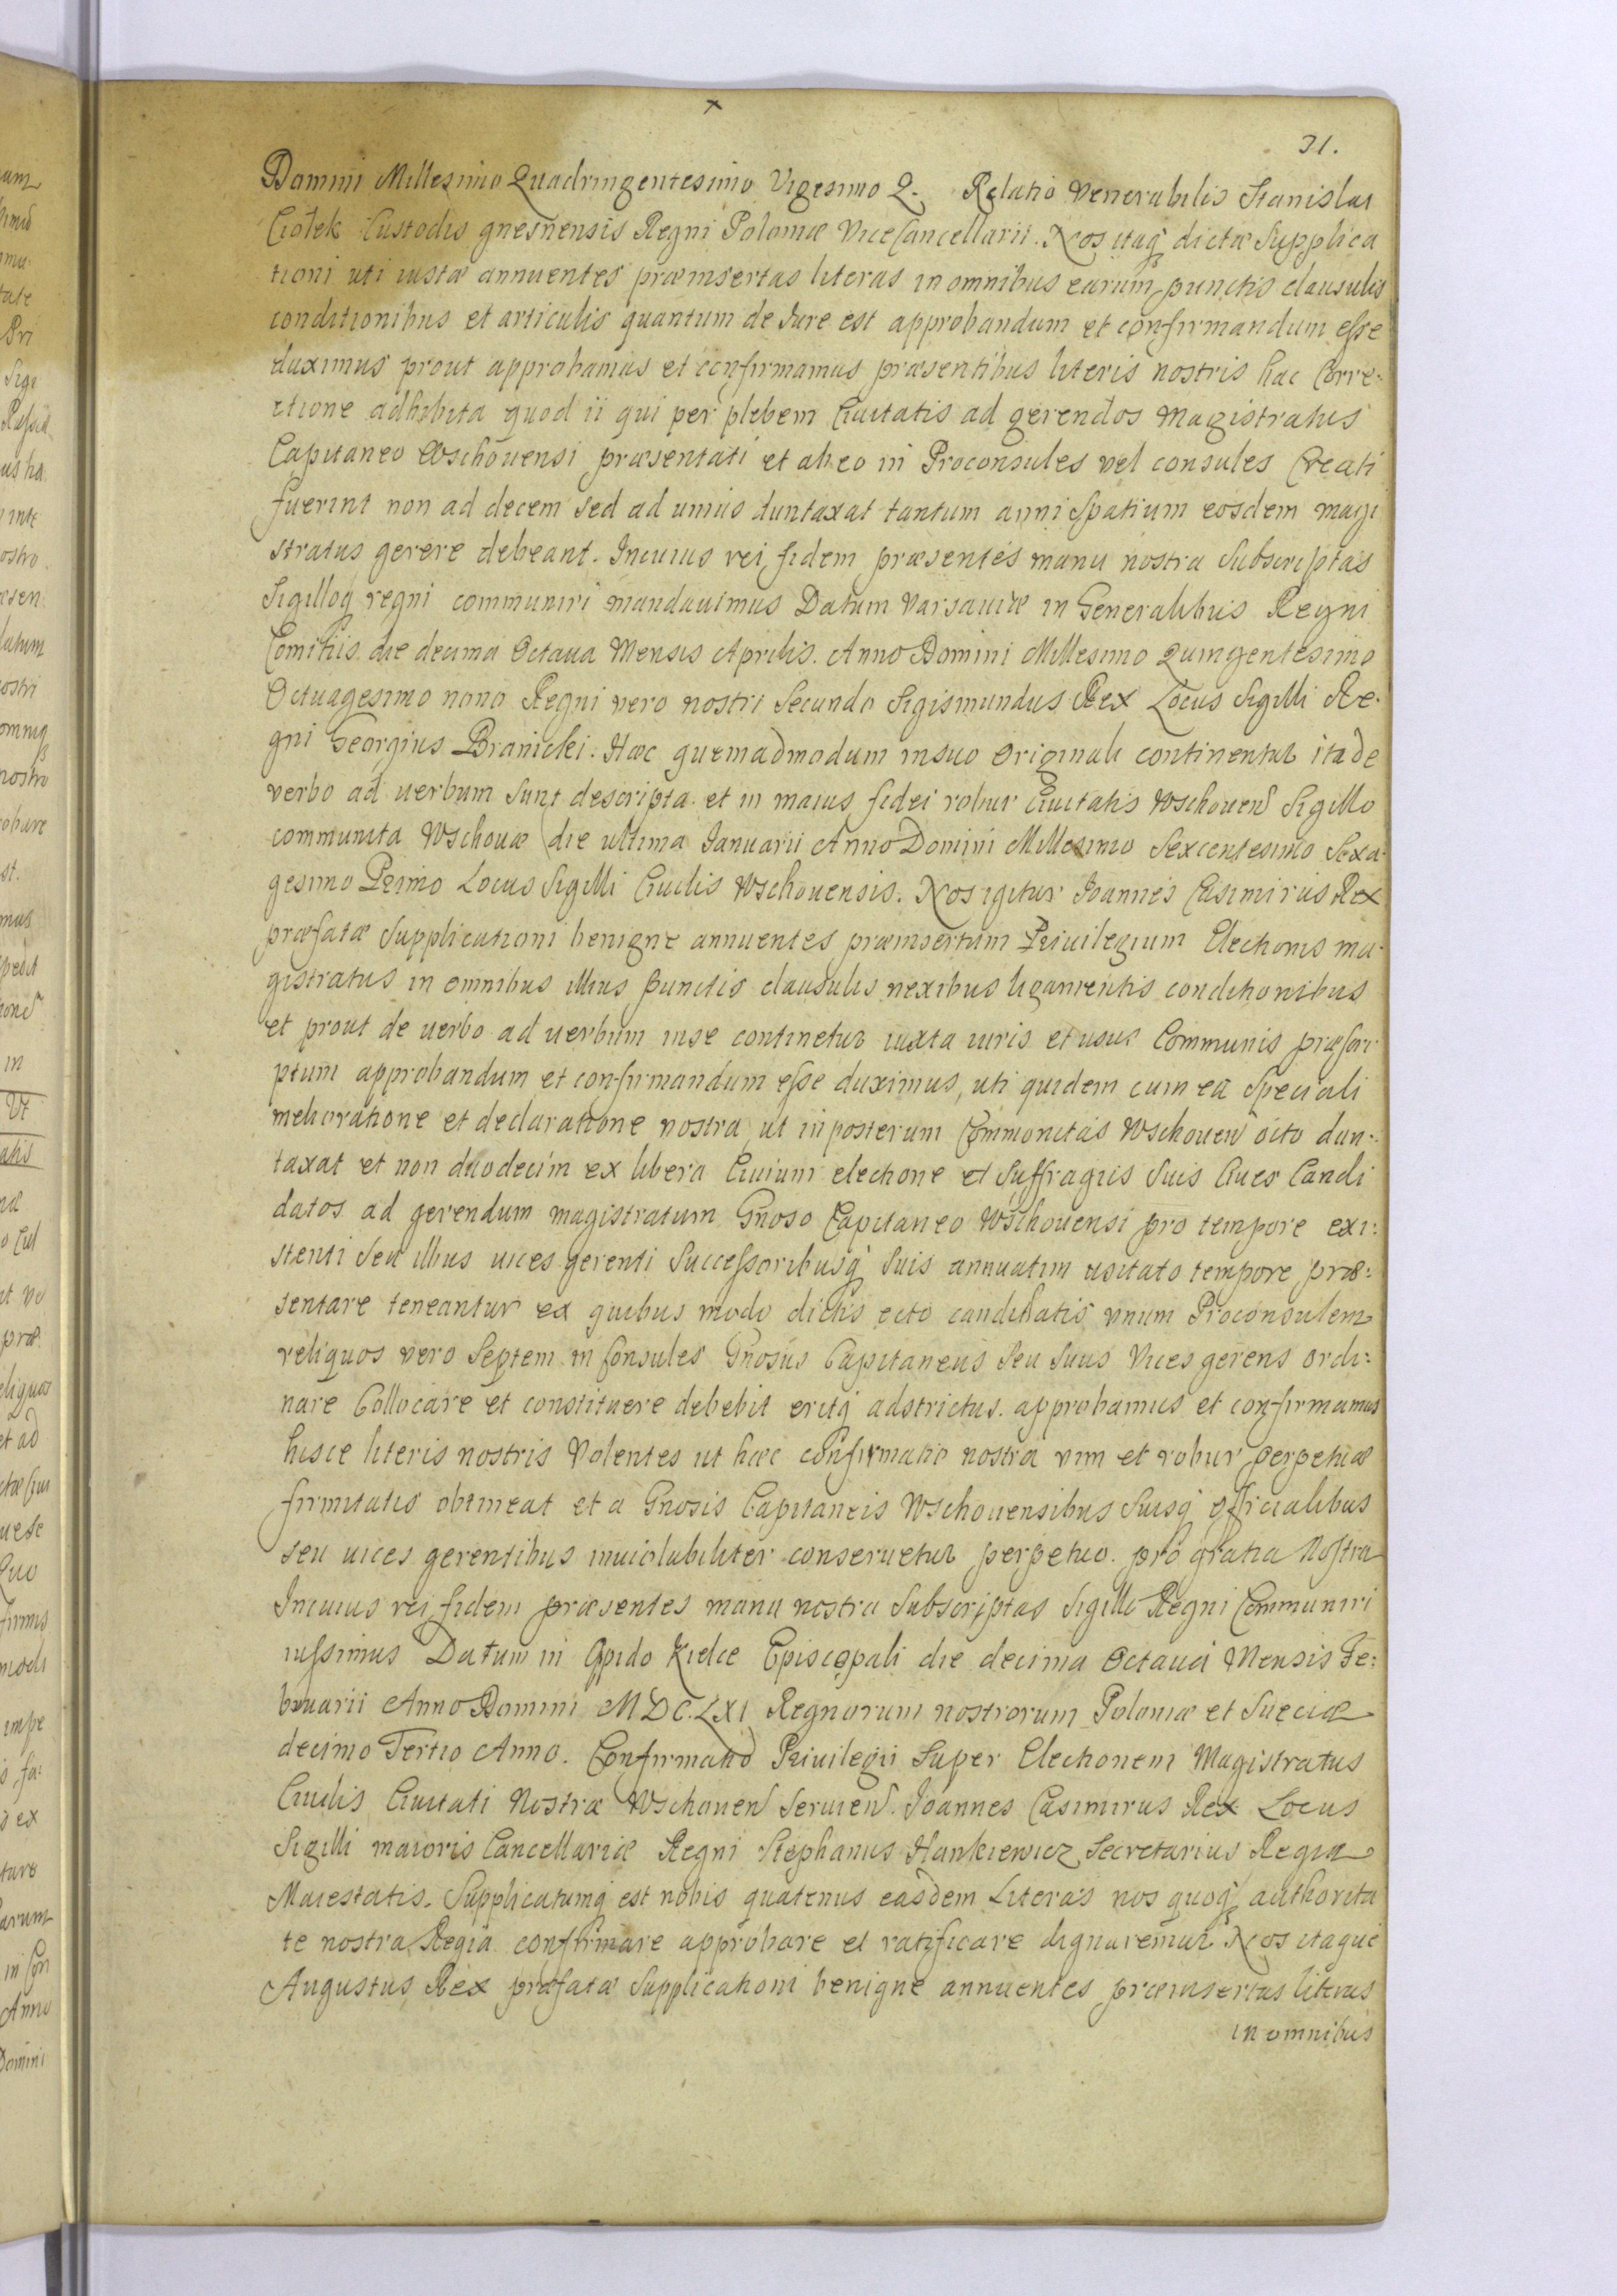 31.
Domini Millesimo Quadringentesimo Vigesimo 2. Relatio Venerabilis Stanislai
Ciołek Custodis gnesnensis Regni Poloniæ ViceCancellarii. Nos itaq dictæ Supplica
tioni uti iustæ annuentes præinsertas literas in omnibus earum punctis clausulis
conditionibus et articulis quantum de Iure est approbandum et confirmandum esse
duximus prout approbamus et confirmamus præsentibus literis nostris hac Corre-
ctione adhibita quod ii qui per plebem Ciuitatis ad gerendos Magistratus
Capitaneo Wschouensi præsentati et ab eo in Proconsules vel consules Creati
fuerint non ad decem sed ad unius duntaxat tantum anni Spatium eosdem magi
stratus gerere debeant. In cuius rei fidem præsentes manu nostra Subscriptas
Sigilloq regni communiri mandauimus Datum Varsauiæ in Generalibus Regni
Comitiis die decima Octaua Mensis Aprilis. Anno Domini Millesimo Quingentesimo
Octuagesimo nono Regni vero nostri Secundo Sigismundus Rex Locus Sigilli Re-
gni Georgius Branicki. Hæc quemadmodum in suo Originali continentur ita de
verbo ad uerbum Sunt descripta et in maius fidei robur Ciuitatis Wschouen Sigillo
communita Wschouæ die ultima Ianuarii Anno Domini Millesimo Sexcentesimo Sexa-
gesimo Primo Locus Sigilli Ciuilis Wschouensis. Nos igitur Ioannes Casimirus Rex
præfatæ Supplicationi benigne annuentes præinsertum Priuilegium Electionis ma-
gistratus in omnibus illius Punctis clausulis nexibus ligamentis conditionibus
et prout de uerbo ad uerbum in se continetur iuxta iuris et usus Communis præscri
ptum approbandum et confirmandum esse duximus, uti quidem cum ea Speciali
melioratione et declaratione nostra, ut in posterum Communitas Wschouen octo dun-
taxat et non duodecim ex libera Ciuium electione et Suffragiis Suis Ciues Candi
datos ad gerendum magistratum Gnoso Capitaneo Wschouensi pro tempore exi:
stenti Seu illius uices gerenti Successoribusq Suis annuatim usitato tempore præ:
sentare teneantur ex quibus modo dictis octo candidatis vnum Proconsulem
reliquos vero Septem in Consules Gnosus Capitaneus Seu Suus Vices gerens ordi:
nare Collocare et constituere debebit eritq adstrictus. approbamus et confirmamus
hisce literis nostris Volentes ut hæc confirmatio nostra vim et robur perpetuæ
firmitatis obtineat et a Gnosis Capitaneis Wschouensibus Suisq officialibus
seu uices gerentibus inuiolabiliter conseruetur perpetuo. pro gratia Nostra
In cuius rei fidem præsentes manu nostra Subscriptas Sigillo Regni Communiri
iussimus Datum in Opido Kielce Episcopali die decima Octaua Mensis Fe:
bruarii Anno Domini MDC.LXI Regnorum nostrorum Poloniæ et Sueciæ
decimo Tertio Anno. Confirmatio Priuilegii Super Electionem Magistratus
Ciuilis Ciuitati Nostræ Wschouen Seruien. Ioannes Casimirus Rex Locus
Sigilli maioris Cancellariæ Regni Stephanus Hankiewicz Secretarius Regiæ
Maiestatis. Supplicatumq est nobis quatenus easdem Literas nos quoq authorita
te nostra Regia confirmare approbare et ratificare dignaremur Nos itaque
Augustus Rex præfatæ Supplicationi benigne annuentes præinsertas literas
in omnibus